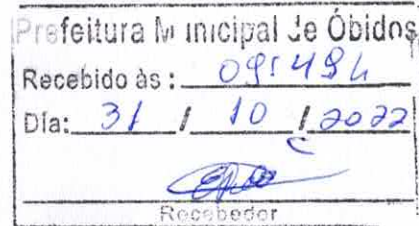 Prefeitura Municipal de Óbidos
Recebido às: 09:49h
Día: 31 / 10 / 2022
Recebedor